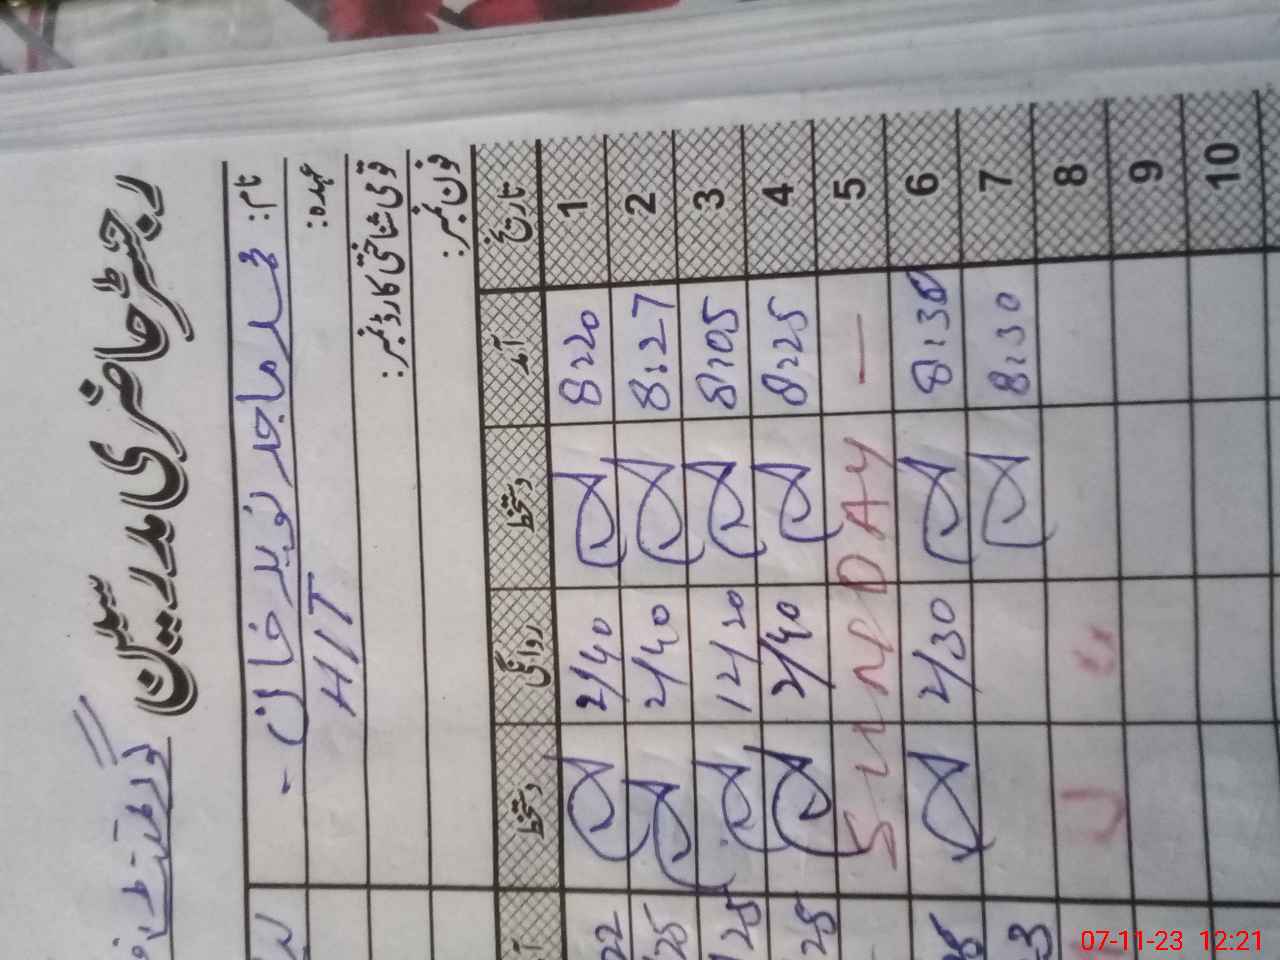 گورنمنٹ
رجسٹر حاضری مدرسین
نام: محمد ماجد نوید خان
عہدہ: HIT
قومی شناختی کارڈ نمبر:
فون نمبر:
تاریخ آمد دستخط روانگی دستخط
1 8:20 2/40
2 8:27 2/40
3 8:05 12/20
4 8:25 2/40
5 — SUNDAY
6 8:30 2/30
7 8:30
8
9
10
22
25
25
25
07-11-23 12:21